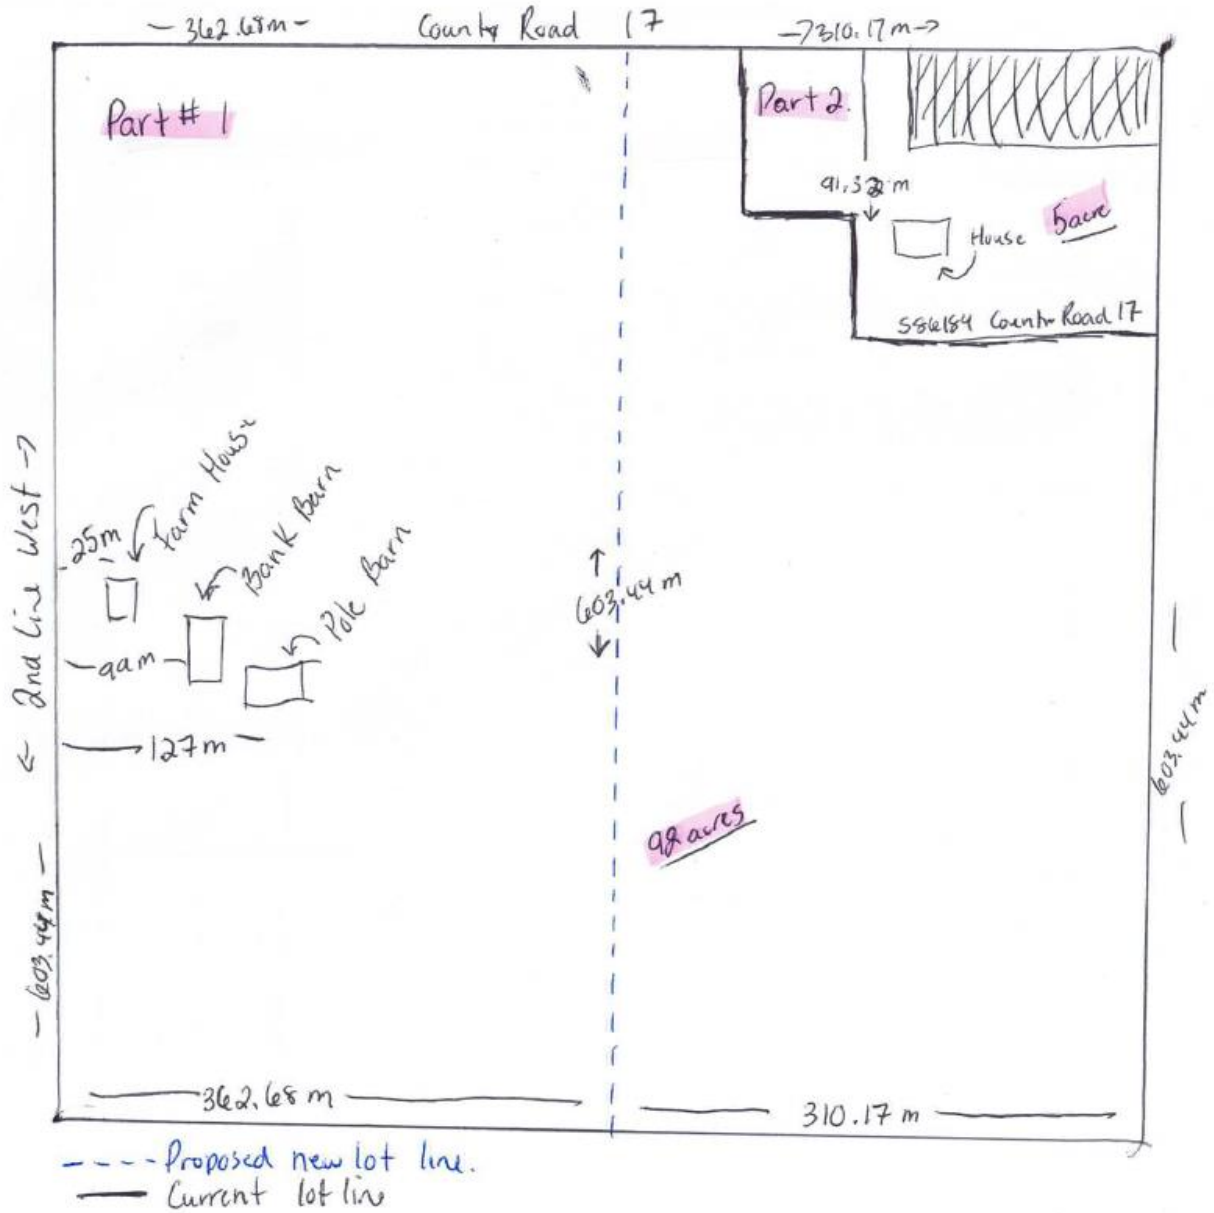 - 362.68m -
County Road 17
→ 310.17m →
Part # 1
Part 2.
91.32 m
5 acre
House
586184 County Road 17
← 2nd Line West →
25m
Farm House
Bank Barn
Pole Barn
603.44 m
- 99m -
127m -
- 603.44m -
98 acres
- 603.44m -
362.68 m
310.17 m
- - - - Proposed new lot line.
— Current lot line